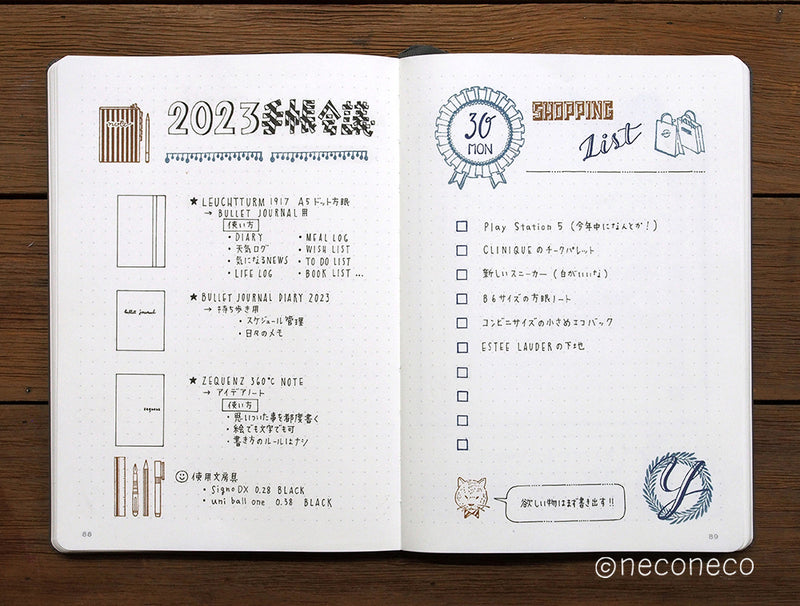 notes
2023手帳会議
★ LEUCHTTURM 1917 A5ドット方眼
→ BULLET JOURNAL用
使い方
・DIARY
・天気ログ
・気になるNEWS
・LIFE LOG
・MEAL LOG
・WISH LIST
・TO DO LIST
・BOOK LIST ...
bullet journal
★ BULLET JOURNAL DIARY 2023
→ 持ち歩き用
・スケジュール管理
・日々のメモ
zequenz
★ ZEQUENZ 360°C NOTE
→ アイデアノート
使い方
・思いついた事を都度書く
・絵でも文字でも可
・書き方のルールはナシ
使用文房具
・Signo DX 0.28 BLACK
・uni ball one 0.38 BLACK
88
30
MON
SHOPPING
List
Play Station 5 (今年中になんとか!)
CLINIQUEのチークパレット
新しいスニーカー (白がいいな)
B6サイズの方眼ノート
コンビニサイズの小さめエコバック
ESTEE LAUDERの下地
欲しい物はまず書き出す!!
y
89
©neconeco